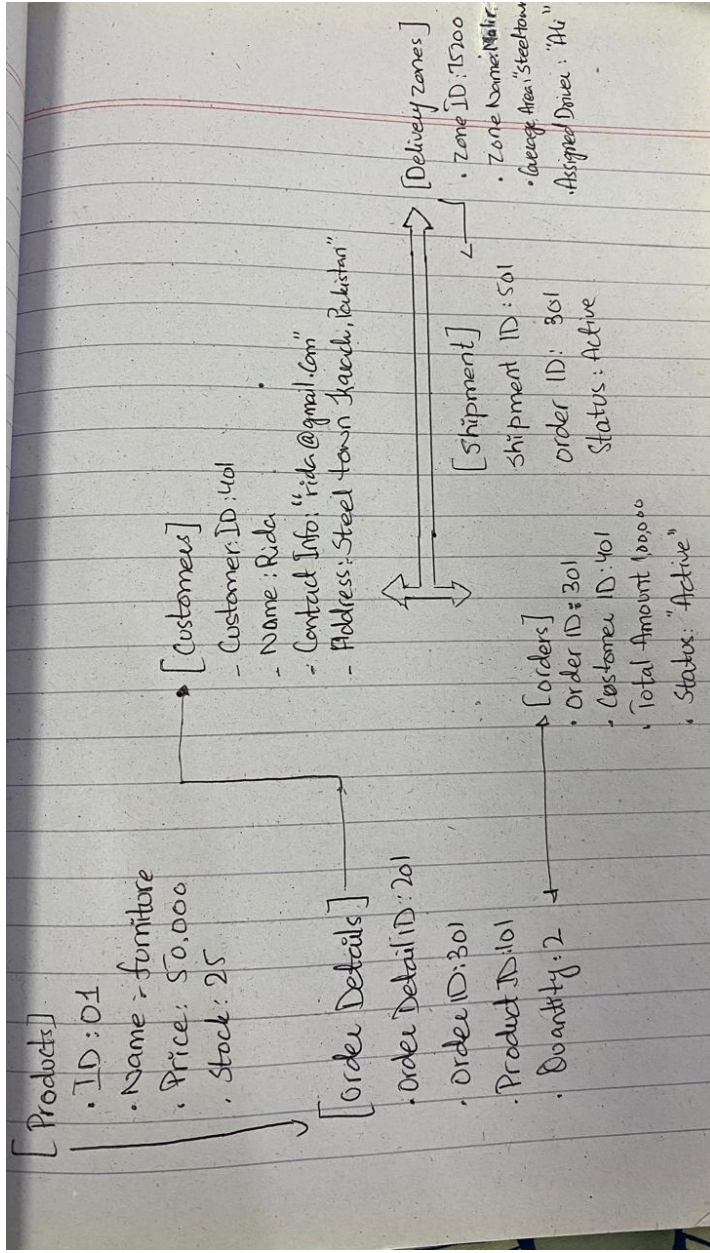 [Products]
. ID : 01
. Name : furniture
. Price : 50,000
. Stock : 25
[Order Details]
. Order Detail ID : 201
. Order ID : 301
. Product ID : 101
. Quantity : 2
[Customers]
- Customer ID : 401
- Name : Rida
- Contact Info : "rida@gmail.com"
- Address : Steel town Karachi, Pakistan"
[orders]
. Order ID : 301
. Customer ID : 401
. Total Amount 100,000
. Status : "Active"
[Shipment]
Shipment ID : 501
order ID : 301
Status : Active
[Delivery zones]
. Zone ID : 75200
. Zone Name : Malir
. Area : "Steel town
. Assigned Driver : "Ali"